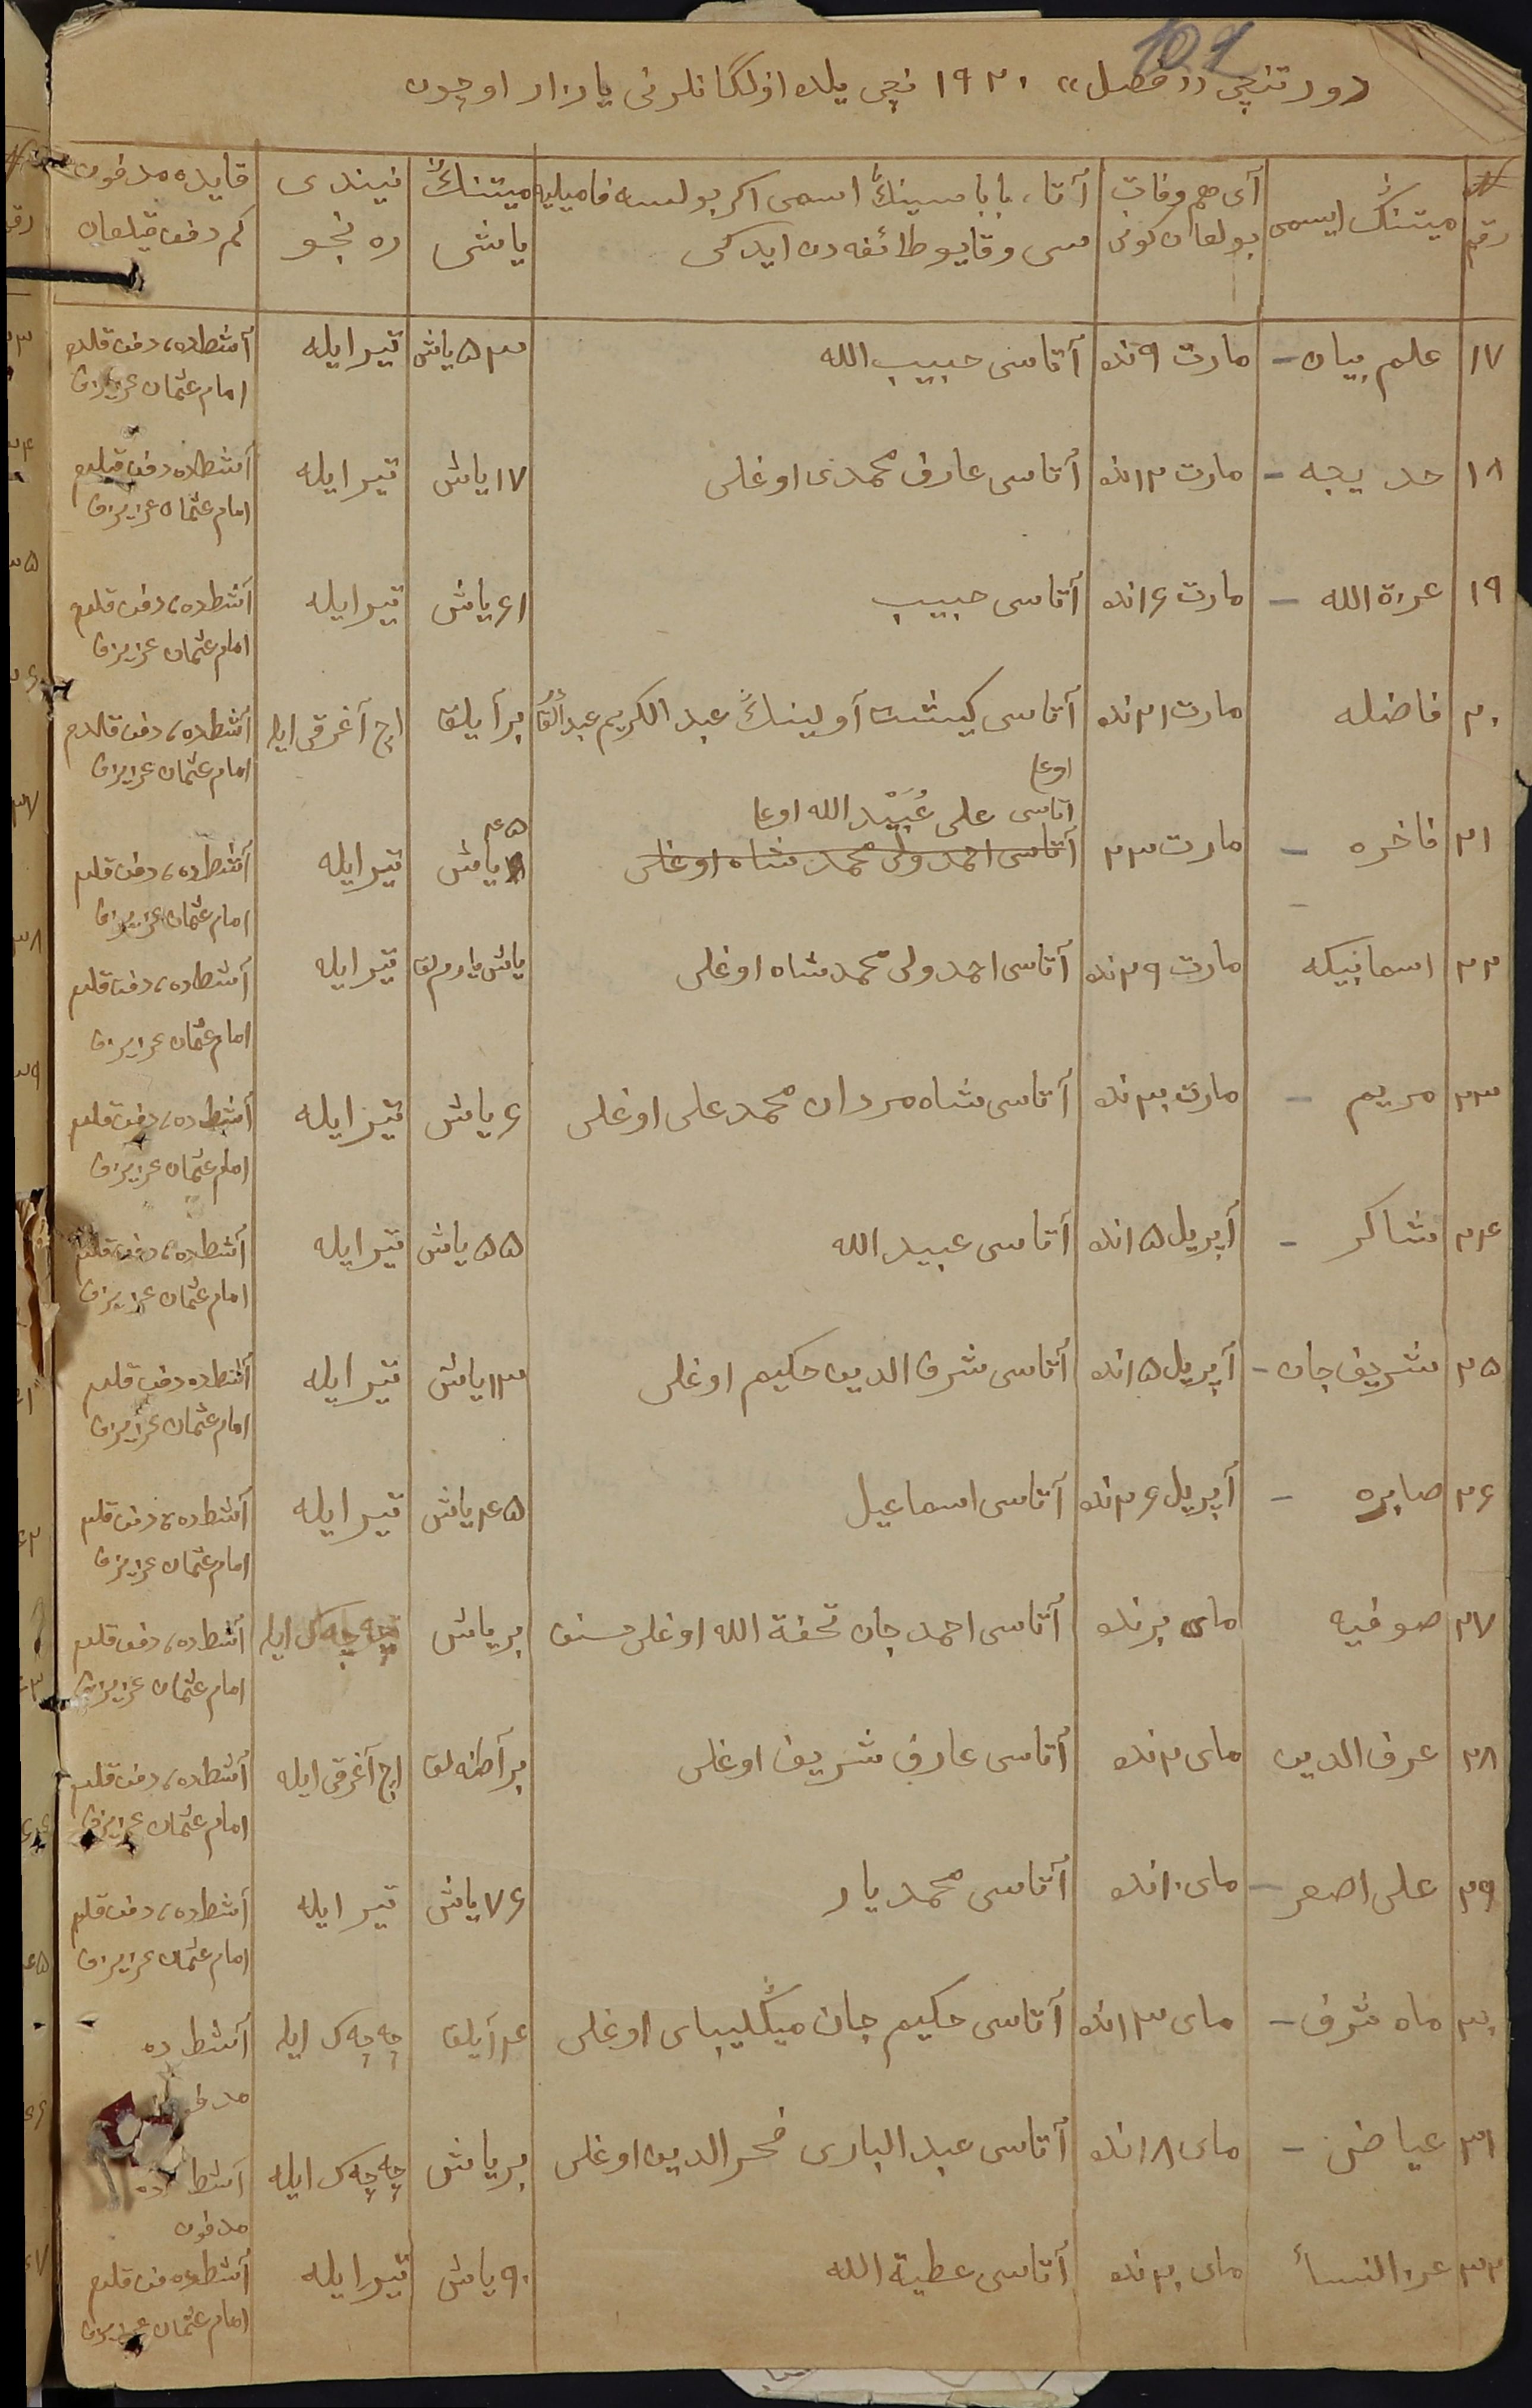 101
دورتنچی «فصل» ۱۹۲۰ نچی یلده اولگانلرنی یازار اوچون
№ رقم | میتنڭ ایسمی | آی هم وفات بولغان کونی | آتا، باباسینڭ اسمی اکر بولسه فامیلیه سی وقایو طائفه دن ایدکی | میتنڭ یاشی | نیندی رنجو | قایده مدفون کم دفن قیلغان
۱۷ | علم بیان - | مارت ۹ نده | آتاسی حبیب الله | ۵۳ یاش | تیر ایله | آشطده، دفن قلدم امام عثمان عزیزف
۱۸ | خدیجه - | مارت ۱۲ نده | آتاسی عارف محمدی اوغلی | ۱۷ یاش | تیر ایله | آشطده دفن قیلدم امام عثمان عزیزف
۱۹ | عزة الله - | مارت ۱۶ نده | آتاسی حبیب | ۶۱ یاش | تیر ایله | آشطده، دفن قلدم امام عثمان عزیزف
۲۰ | فاضله | مارت ۲۱ نده | آتاسی کیشت آولینڭ عبد الکریم اوغلی | بر آیلق | اچ آغرقی ایله | آشطده، دفن قلدم امام عثمان عزیزف
۲۱ | فاخره - | مارت ۲۲ | آتاسی علی عُبَیْد الله اوغلی آتاسی احمدولی محمد شاه اوغلی | ۴۵ یاش | تیر ایله | آشطده، دفن قلدم امام عثمان عزیزف
۲۲ | اسمابیکه | مارت ۲۹ نده | آتاسی احمدولی محمد شاه اوغلی | یاش یارملق | تیر ایله | آشطده، دفن قلدم امام عثمان عزیزف
۲۳ | مریم - | مارت ۳۰ نده | آتاسی شاه مردان محمد علی اوغلی | ۶ یاش | تیز ایله | آشطده، دفن قلدم امام عثمان عزیزف
۲۴ | شاکر - | آپریل ۱۵ نده | آتاسی عبید الله | ۵۵ یاش | تیر ایله | آشطده، دفن قلدم امام عثمان عزیزف
۲۵ | شریف جان - | آپریل ۱۵ نده | آتاسی شرف الدین حکیم اوغلی | ۱۳ یاش | تیر ایله | آشطده دفن قلدم امام عثمان عزیزف
۲۶ | صابره - | آپریل ۲۶ نده | آتاسی اسماعیل | ۴۵ یاش | تیر ایله | آشطده، دفن قلدم امام عثمان عزیزف
۲۷ | صوفیه | مای برنده | آتاسی احمد جان تحفة الله اوغلی | بر یاش | چه چه ک ایله | آشطده، دفن قلدم امام عثمان عزیزف
۲۸ | عرف الدین | مای ۲ نده | آتاسی عارف شریف اوغلی | بر آطنه لق | اچ آغرقی ایله | آشطده، دفن قلدم امام عثمان عزیزف
۲۹ | علی اصغر - | مای ۱۰ نده | آتاسی محمد یار | ۷۶ یاش | تیر ایله | آشطده، دفن قلدم امام عثمان عزیزف
۳۰ | ماه شرف - | مای ۱۳ نده | آتاسی حکیم جان میڭلیبای اوغلی | ۴ آیلق | چه چه ک ایله | آشطده
۳۱ | عیاض - | مای ۱۸ نده | آتاسی عبد الباری فخر الدین اوغلی | بر یاش | چه چه ک ایله | آشطده مدفون
۳۲ | عز النسأ | مای ۲۰ نده | آتاسی عطیة الله | ۹۰ یاش | تیر ایله | آشطده دفن قلدم امام عثمان عزیزف